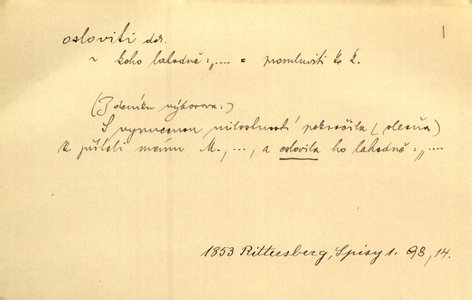 osloviti dok.
~ koho lahodně: „.... = promluviti ke k.
(Z deníku výborova:)
S vynucenou milostností pokročila (slečna)
k příteli mému M., ..., a oslovila ho lahodně: „....
1853 Rittersberg, Spisy 1. 98, 14.